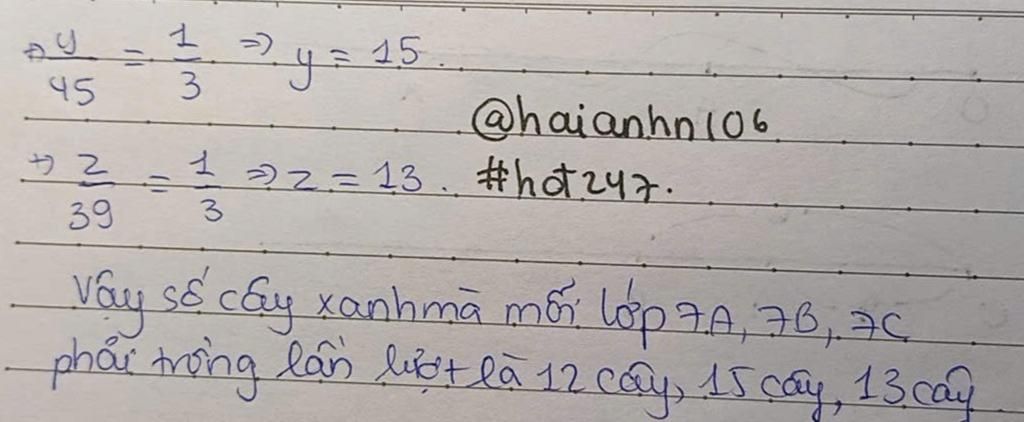 +) y/45 = 1/3 => y = 15.
@haianhn106
+) z/39 = 1/3 => z = 13. #hot247.
Vậy số cây xanh mà mỗi lớp 7A, 7B, 7C
phải trồng lần lượt là 12 cây, 15 cây, 13 cây